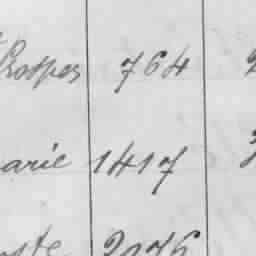 Prosper 764 2
arie 1417 3
oste 2076